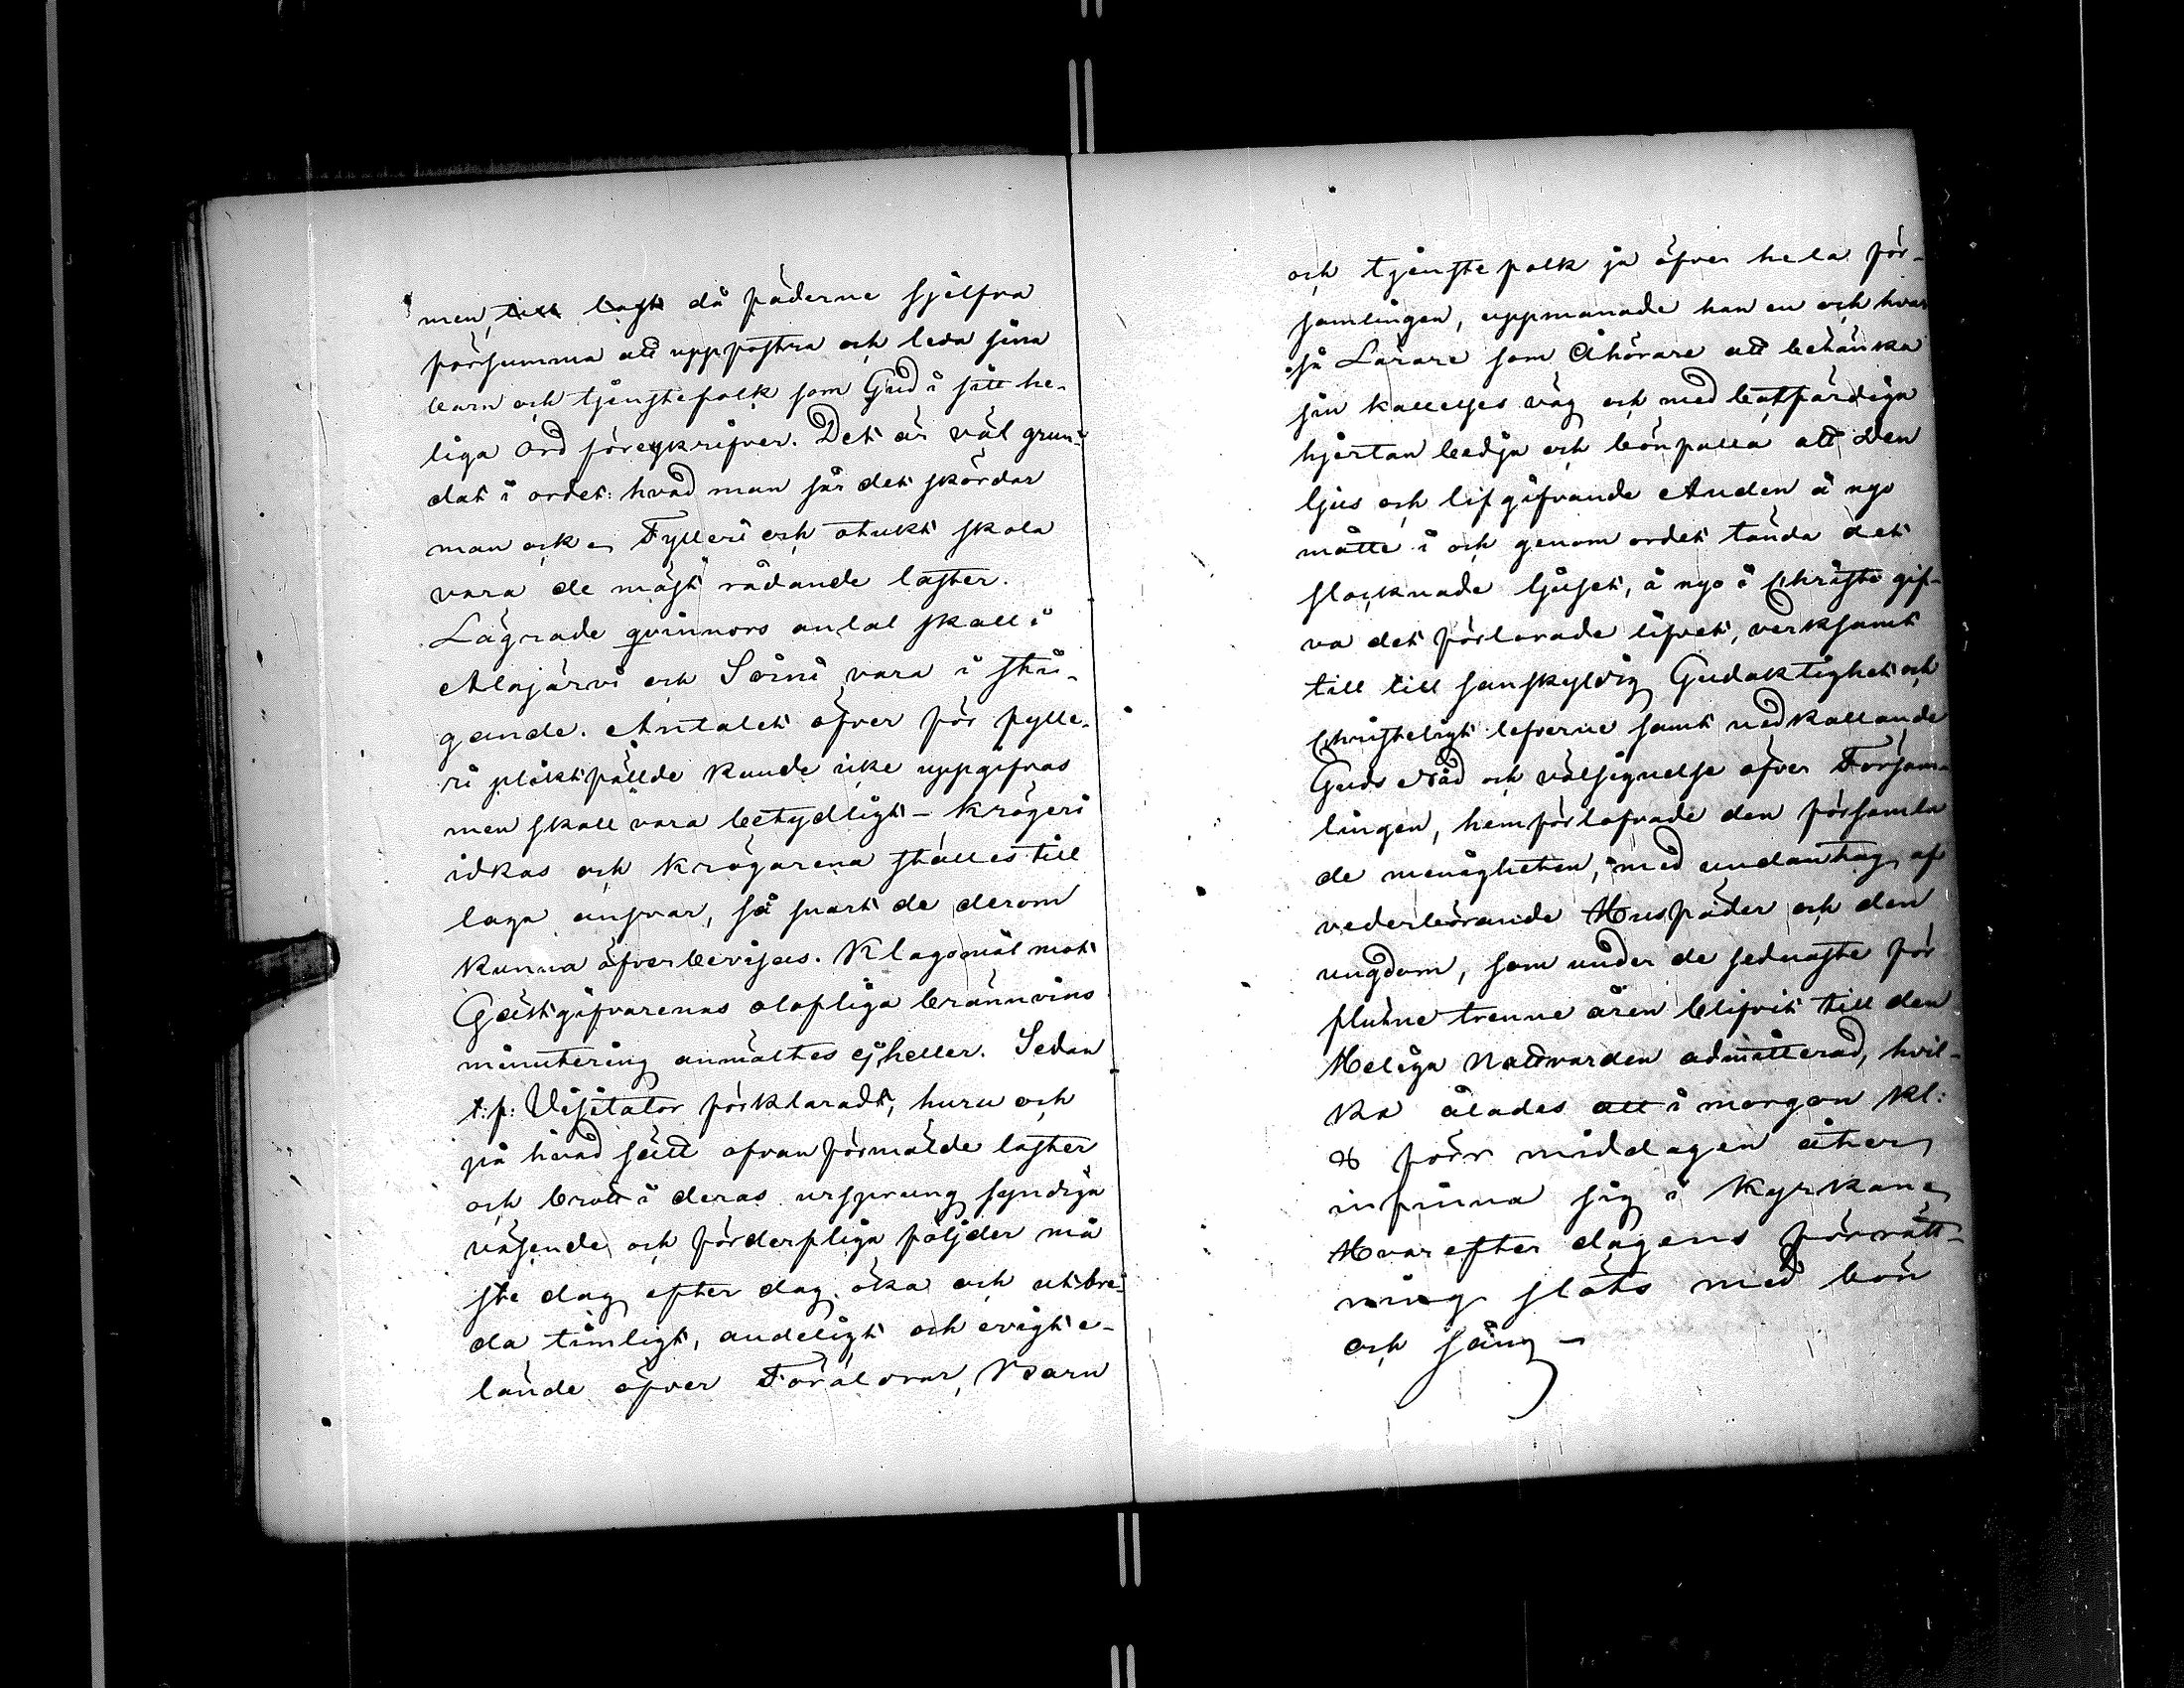 men, till lagt då fäderne sjelfva
försumma att uppfostra och leda sina
barn och tjenstefolk som Gud i sitt he-
liga ord föreskrifver. Det är väl grun-
dat i ordet: hvad man sår det skördar
man ock. Fylleri och otukt skola
vara de mäst rådande laster.
Lägrade qvinnors antal skall i
Alajärvi och Soini vara i sti-
gande. Antalet öfver för fylle-
ri pliktfällde kunde icke uppgifvas
men skall vara betydligt - Krögeri
idkas och krögarena ställes till
laga ansvar, så snart de derom
kunna öfverbevisas. Klagomål mot
Gästgifvarenas olofliga brännvins
minutering anmältes ej heller. Sedan
t: f: Visitator förklaradt, huru och
på hvad sätt ofvanförmälde laster
och brott i deras ursprung syndiga
väsende och förderfliga följder må
ste dag efter dag öka och utbre-
da timligt, andeligt och evigt e-
lände öfver Föräldrar, Barn
och tjenstefolk ja öfver hela för-
samlingen, uppmanade han en och hvar
så Lärare som Åhörare att betänka
sin kallelses väg och med botfärdiga
hjertan bedja och bönfalla att Den
ljus och lifgifvande Anden å nyo
måtte i och genom ordet tända det
slocknade ljuset, å nyo i Christo gif-
va det förlorade lifvet, verksamt
till till sanskyldig Gudaktighet och
Christeligt lefverne samt nedkallande
Guds Nåd och välsignelse öfver Försam-
lingen, hemförlofvade den församla
de menigheten, med undantag af
vederbörande Husfäder och den
ungdom, som under de sednaste för
flutne trenne åren blifvit till den
Heliga Nattvarden admitterad, hvil-
ka ålades att i morgon kl:
8 förr middagen åter
infinna sig i Kyrkan.
Hvarefter dagens förrätt-
ning slöts med bön
och sång -